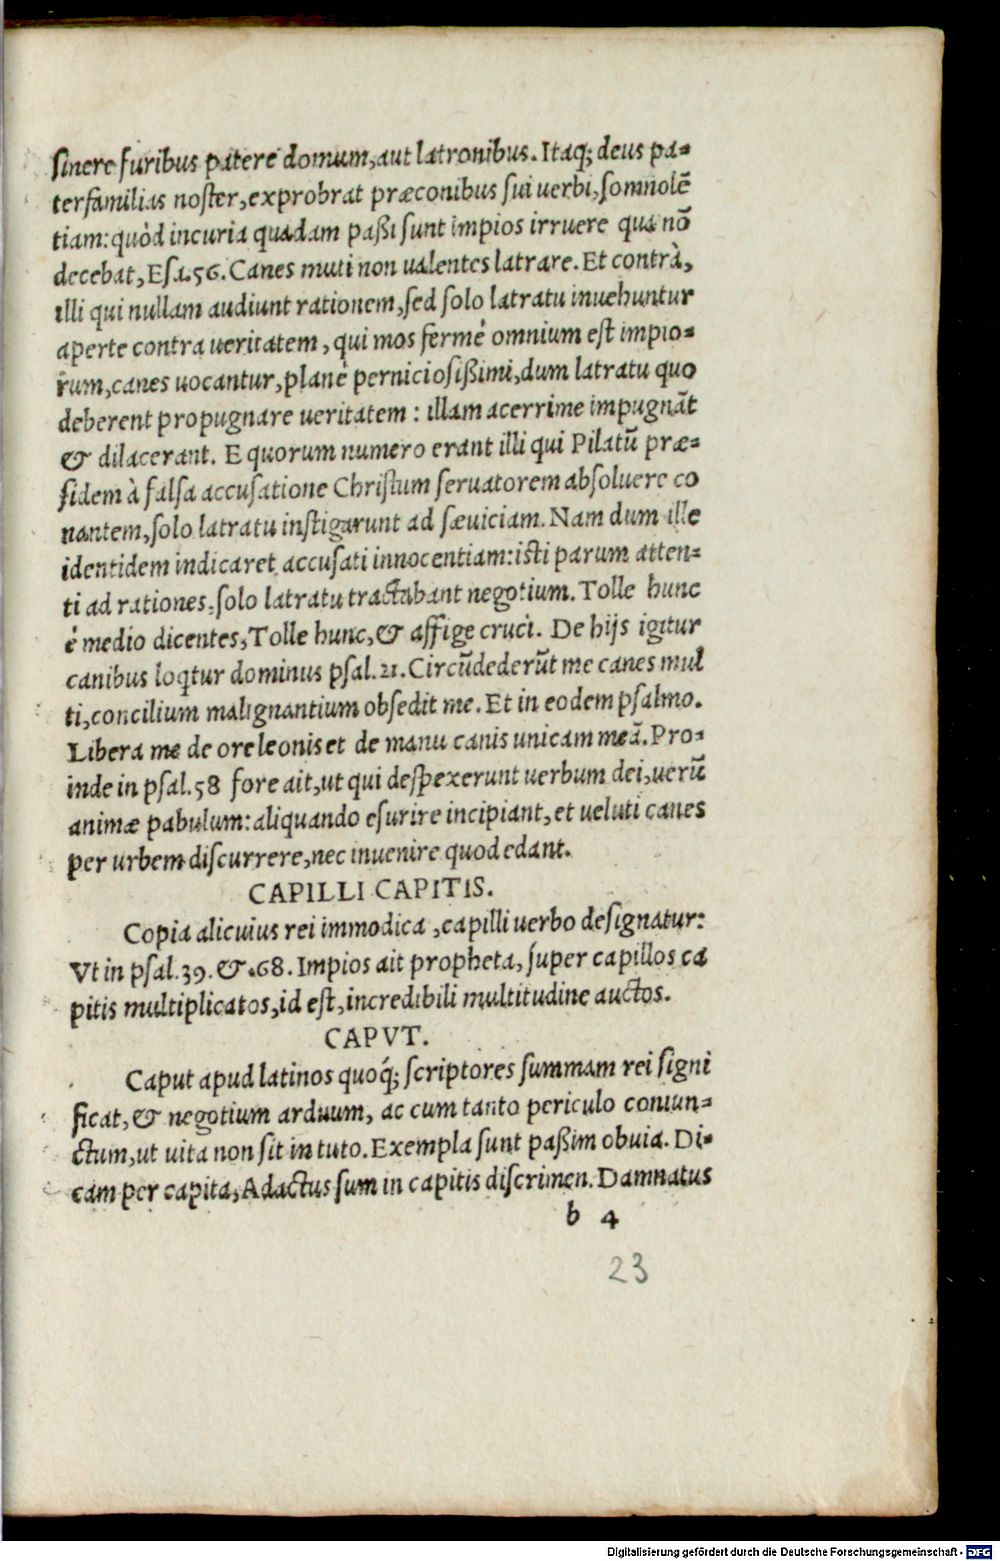 sinere furibus patere domum, aut latronibus. Itaq; deus pa-
terfamilias noster, exprobrat præconibus sui uerbi, somnolẽ
tiam: quòd incuria quadam paßi sunt impios irruere qua nõ
decebat, Esa.56. Canes muti non ualentes latrare. Et contrà,
illi qui nullam audiunt rationem, sed solo latratu inuehuntur
aperte contra ueritatem, qui mos fermè omnium est impio-
rum, canes uocantur, planè perniciosißimi, dum latratu quo
deberent propugnare ueritatem : illam acerrime impugnãt
& dilacerant. E quorum numero erant illi qui Pilatũ præ-
sidem à falsa accusatione Christum seruatorem absoluere co
nantem, solo latratu instigarunt ad sæuiciam. Nam dum ille
identidem indicaret accusati innocentiam: isti parum atten-
ti ad rationes, solo latratu tractabant negotium. Tolle hunc
è medio dicentes, Tolle hunc, & affige cruci. De hijs igitur
canibus loq̃tur dominus psal.21. Circũdederũt me canes mul
ti, concilium malignantium obsedit me. Et in eodem psalmo.
Libera me de ore leonis et de manu canis unicam meã. Pro-
inde in psal.58 fore ait, ut qui despexerunt uerbum dei, uerũ
animæ pabulum: aliquando esurire incipiant, et ueluti canes
per urbem discurrere, nec inuenire quod edant.
CAPILLI CAPITIS.
Copia alicuius rei immodica, capilli uerbo designatur:
Vt in psal.39. &.68. Impios ait propheta, super capillos ca
pitis multiplicatos, id est, incredibili multitudine auctos.
CAPVT.
Caput apud latinos quoq́; scriptores summam rei signi
ficat, & negotium arduum, ac cum tanto periculo coniun-
ctum, ut uita non sit in tuto. Exempla sunt paßim obuia. Di-
cam per capita, Adactus sum in capitis discrimen. Damnatus
b 4
23
Digitalisierung gefördert durch die Deutsche Forschungsgemeinschaft - DFG